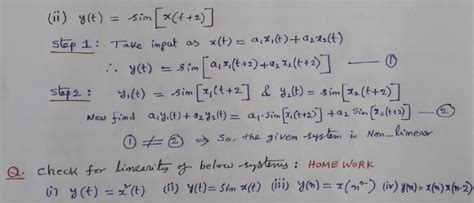 (ii) y(t) = sin[x(t+2)]
Step 1: Take input as x(t) = a₁x₁(t) + a₂x₂(t)
∴ y(t) = sin[a₁x₁(t+2) + a₂x₂(t+2)] — ①
Step 2: y₁(t) = sin[x₁(t+2)] & y₂(t) = sin[x₂(t+2)]
Now find a₁y₁(t) + a₂y₂(t) = a₁.sin[x₁(t+2)] + a₂ Sin[x₂(t+2)] — ②
① ≠ ② → So, the given system is Non_linear
Q. Check for linearity of below systems: HOME WORK
(i) y(t) = x²(t) (ii) y(t) = Sin x(t) (iii) y(n) = x(n²) (iv) y(n) = x(n)x(n-2)